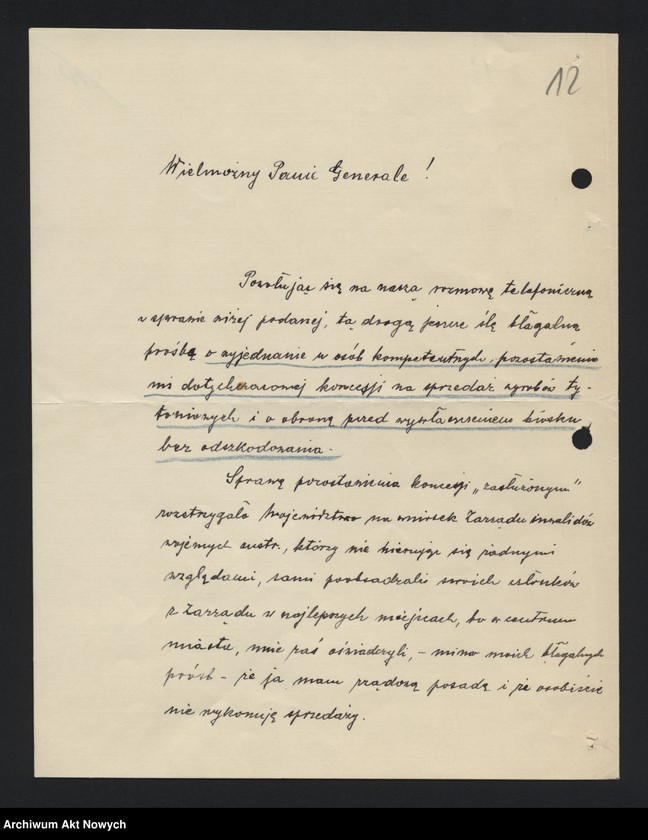 12
Wielmożny Panie Generale!
Powołując się na naszą rozmowę telefoniczną
w sprawie niżej podanej, tą drogą jeszcze ślę błagalną
prośbę o wyjednanie u osób kompetentnych, pozostawienie
mi dotychczasowej koncesji na sprzedaż wyrobów ty-
toniowych i o obronę przed wywłaszczeniem kiosku
bez odszkodowania.
Sprawę pozostawienia koncesji „zasłużonym”
rozstrzygało Województwo na wniosek Zarządu inwalidów
wojennych austr., którzy nie kierując się żadnymi
względami, sami poobsadzali swoich członków
z Zarządu w najlepszych miejscach, bo w centrum
miasta, mnie zaś oświadczyli, - mimo moich błagalnych
próśb - że ja mam rządową posadę i że osobiście
nie wykonuję sprzedaży.
Archiwum Akt Nowych